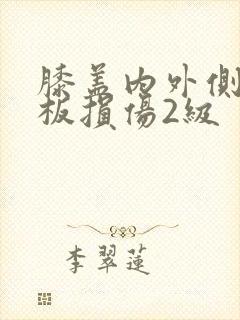 膝盖内外側
板損傷2級
李翠蓮